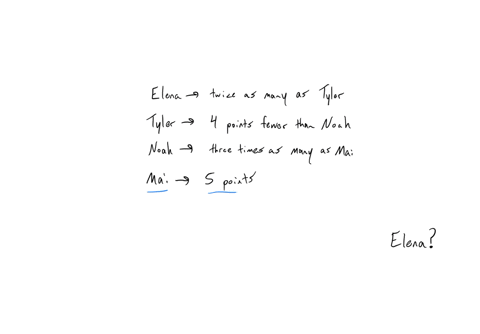 Elena → twice as many as Tyler
Tyler → 4 points fewer than Noah
Noah → three times as many as Mai
Mai → 5 points
Elena?